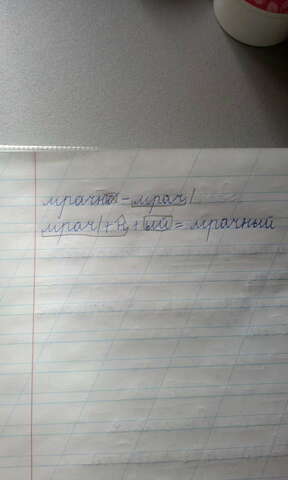 мрачно = мрач/
мрач/ + н + ый = мрачный